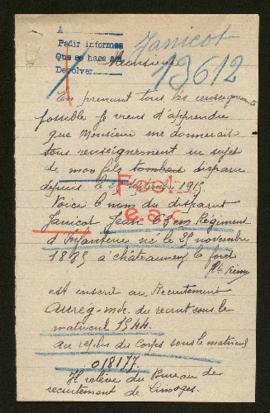 A
Pedir informes
Que se hace
Devolver
Janicot
13612
Monsieur
En prenant tous les renseignements
possible Je viens d'apprendre
que Monsieur me donnerait
tous renseignement au sujet
de mon fils tombeau disparu
depuis le 1915.
Voici le nom du disparut
Janicot Jean Regiment
d'Infanterie né le 25 novembre
1895 à châteauneuf la foret
Hte Vienne
est inscrit au Recrutement
au reg- mle. du recrut sous le
matricul 1544
au reg du Corps sous le matricul
018177.
Il relève du Bureau de
recrutement de Limoges.